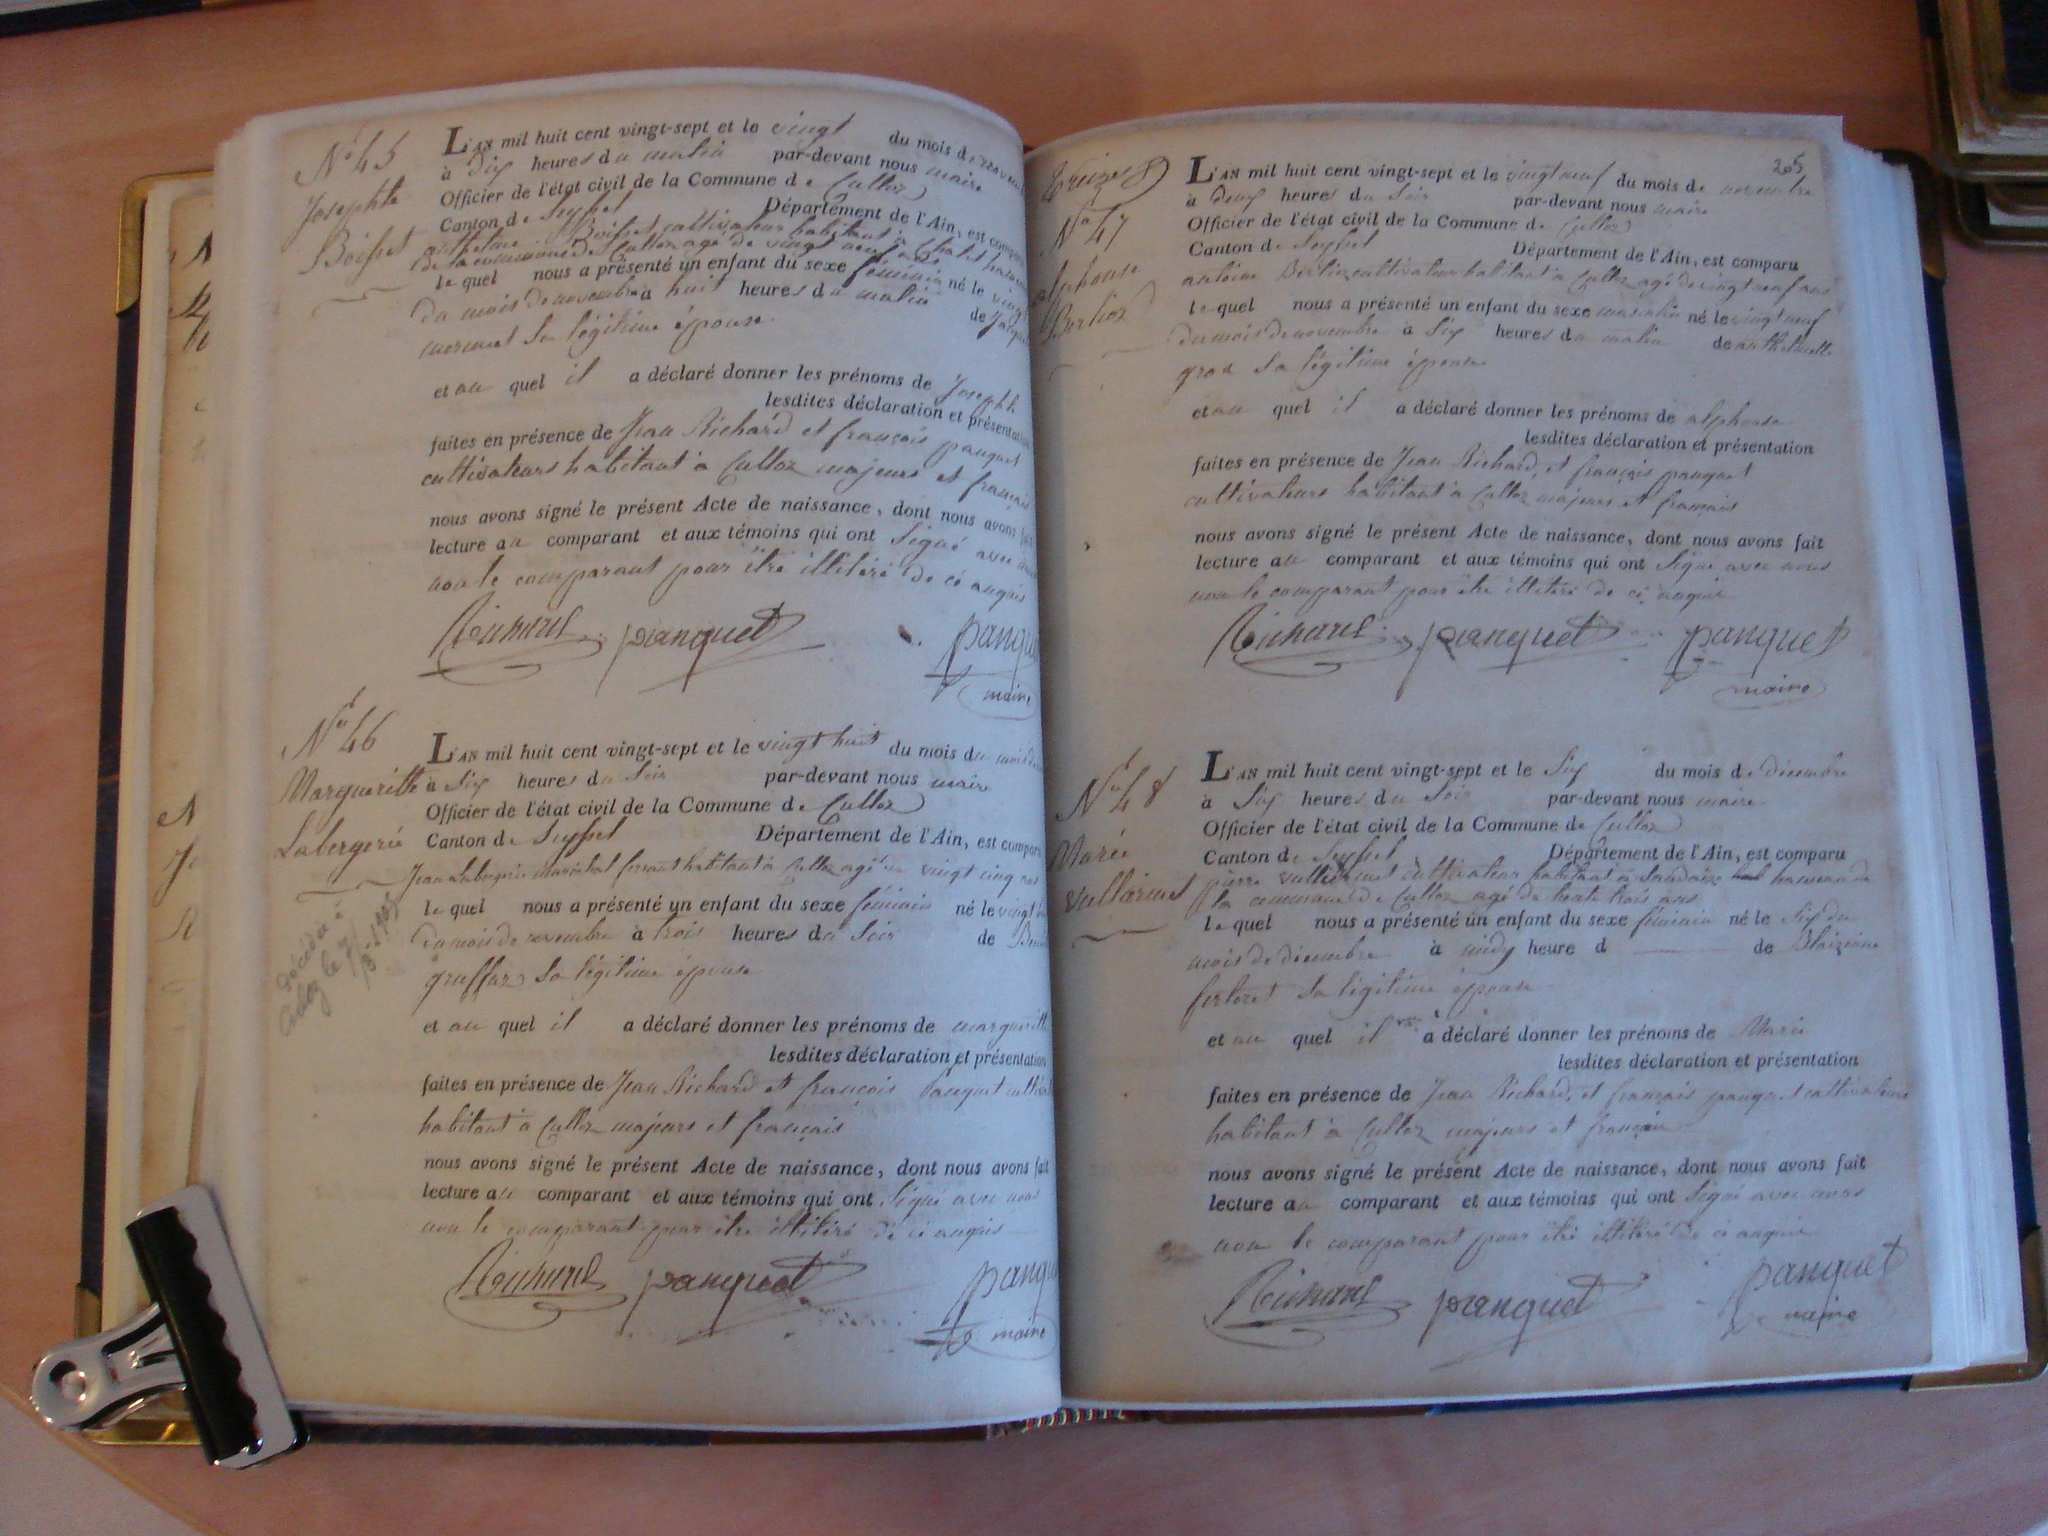 No 45
Josephte
Boisset
L'AN mil huit cent vingt-sept et le vingt du mois de novem
à dix heures du matin par-devant nous maire
Officier de l'état civil de la Commune de Culloz
Canton de Seyssel Département de l'Ain, est compa
anthelme Boisset cultivateur habitant à
de la commune de Culloz agé de vingt neuf ans
le quel nous a présenté un enfant du sexe féminin né le vingt
du mois de novembre à huit heures du matin de
mermet sa légitime épouse
et au quel il a déclaré donner les prénoms de Josephte
lesdites déclaration et présentation
faites en présence de Jean Richard et françois panquet
cultivateurs habitant à Culloz majeurs et français
nous avons signé le présent Acte de naissance, dont nous avons fait
lecture au comparant et aux témoins qui ont Signé avec nous
non le comparant pour être illitéré de ce anquis
Richard panquet panque
maire
No 46
Marguerithe
Labergerie
décédée à
Culoz le
L'AN mil huit cent vingt-sept et le vingt huit du mois du mois de
à Six heures du Soir par-devant nous maire
Officier de l'état civil de la Commune de Culloz
Canton de Seyssel Département de l'Ain, est comparu
Jean Labergerie maréchal ferrant habitant à Culloz agé de vingt cinq ans
le quel nous a présenté un enfant du sexe féminin né le vingt
du mois de novembre à trois heures du Soir de
gruffaz sa légitime épouse
et au quel il a déclaré donner les prénoms de margueritte
lesdites déclaration et présentation
faites en présence de Jean Richard et françois panquet cultivat
habitant à Culloz majeurs et français
nous avons signé le présent Acte de naissance, dont nous avons fait
lecture au comparant et aux témoins qui ont Signé avec nous
non le comparant pour être illitéré de ce anquis
Richard panquet panqu
maire
205
No 47
alphonse
Berlioz
L'AN mil huit cent vingt-sept et le vingt neuf du mois de novembre
à deux heures du Soir par-devant nous maire
Officier de l'état civil de la Commune de Culloz
Canton de Seyssel Département de l'Ain, est comparu
antoine Berlioz cultivateur habitant à Culloz agé de vingt neuf ans
le quel nous a présenté un enfant du sexe masculin né le vingt neuf
du mois de novembre à Six heures du matin de anthelmette
gros sa légitime épouse
et au quel il a déclaré donner les prénoms de alphonse
lesdites déclaration et présentation
faites en présence de Jean Richard, et françois panquet
cultivateurs habitant à Culloz majeurs et français
nous avons signé le présent Acte de naissance, dont nous avons fait
lecture au comparant et aux témoins qui ont Signé avec nous
non le comparant pour être illitéré de ce anquis
Richard panquet panquet
maire
No 48
Marie
Vulliermet
L'AN mil huit cent vingt-sept et le Six du mois de décembre
à Six heures du Soir par-devant nous maire
Officier de l'état civil de la Commune de Culloz
Canton de Seyssel Département de l'Ain, est comparu
pierre vulliermet cultivateur habitant à hameau de
la commune de Culloz agé de trente trois ans
le quel nous a présenté un enfant du sexe féminin né le Six du
mois de décembre à midy heure d de Blaizine
serteret sa légitime épouse
et au quel il a déclaré donner les prénoms de Marie
lesdites déclaration et présentation
faites en présence de Jean Richard, et français panquet cultivateurs
habitant à Culloz majeurs et français
nous avons signé le présent Acte de naissance, dont nous avons fait
lecture au comparant et aux témoins qui ont Signé avec nous
non le comparant pour être illitéré de ce anquis
Richard panquet panquet
maire